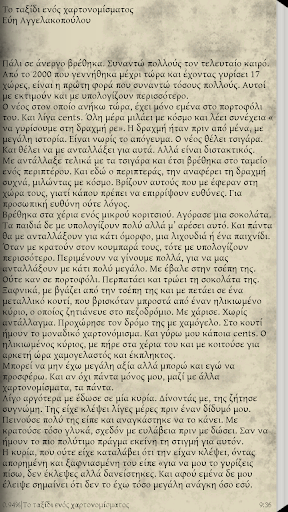 Το ταξίδι ενός χαρτονομίσματος
Εύη Αγγελακοπούλου
Πάλι σε άνεργο βρέθηκα. Συναντώ πολλούς τον τελευταίο καιρό.
Από το 2000 που γεννήθηκα μέχρι τώρα και έχοντας γυρίσει 17
χώρες, είναι η πρώτη φορά που συναντώ τόσους πολλούς. Αυτοί
με εκτιμούν και με υπολογίζουν περισσότερο.
Ο νέος στον οποίο ανήκω τώρα, έχει μόνο εμένα στο πορτοφόλι
του. Και λίγα cents. Όλη μέρα μιλάει με κόσμο και λέει συνέχεια «
να γυρίσουμε στη δραχμή ρε». Η δραχμή ήταν πριν από μένα, με
μεγάλη ιστορία. Είναι νωρίς το απόγευμα. Ο νέος θέλει τσιγάρα.
Και θέλει να με ανταλλάξει για αυτά. Αλλά είναι διστακτικός.
Με αντάλλαξε τελικά με τα τσιγάρα και έτσι βρέθηκα στο ταμείο
ενός περιπτέρου. Και εδώ ο περιπτεράς, την αναφέρει τη δραχμή
συχνά, μιλώντας με κόσμο. Βρίζουν αυτούς που με έφεραν στη
χώρα τους, γιατί κάπου πρέπει να επιρρίψουν ευθύνες. Για
προσωπική ευθύνη ούτε λόγος.
Βρέθηκα στα χέρια ενός μικρού κοριτσιού. Αγόρασε μια σοκολάτα.
Τα παιδιά δε με υπολογίζουν πολύ αλλά μ' αρέσει αυτό. Και πάντα
θα με ανταλλάξουν για κάτι όμορφο, μια λιχουδιά ή ένα παιχνίδι.
Όταν με κρατούν στον κουμπαρά τους, τότε με υπολογίζουν
περισσότερο. Περιμένουν να γίνουμε πολλά, για να μας
ανταλλάξουν με κάτι πολύ μεγάλο. Με έβαλε στην τσέπη της.
Ούτε καν σε πορτοφόλι. Περπατάει και τρώει τη σοκολάτα της.
Ξαφνικά, με βγάζει από την τσέπη της και με πετάει σε ένα
μεταλλικό κουτί, που βρισκόταν μπροστά από έναν ηλικιωμένο
κύριο, ο οποίος ζητιάνευε στο πεζοδρόμιο. Με χάρισε. Χωρίς
αντάλλαγμα. Προχώρησε τον δρόμο της με χαμόγελο. Στο κουτί
ήμουν το μοναδικό χαρτονόμισμα. Και γύρω μου κάποια cents. Ο
ηλικιωμένος κύριος, με πήρε στα χέρια του και με κοιτούσε για
αρκετή ώρα χαμογελαστός και έκπληκτος.
Μπορεί να μην έχω μεγάλη αξία αλλά μπορώ και εγώ να
προσφέρω. Και αν όχι πάντα μόνος μου, μαζί με άλλα
χαρτονομίσματα, τα πάντα.
Λίγο αργότερα με έδωσε σε μία κυρία. Δίνοντάς με, της ζήτησε
συγνώμη. Της είχε κλέψει λίγες μέρες πριν έναν δίδυμό μου.
Πεινούσε πολύ της είπε και αναγκάστηκε να το κάνει. Με
κρατούσε τόσο γλυκά, σχεδόν με ευλάβεια πριν με δώσει. Σαν να
ήμουν το πιο πολύτιμο πράγμα εκείνη τη στιγμή για αυτόν.
Η κυρία, που ούτε είχε καταλάβει ότι την είχαν κλέψει, όντας
απορημένη και ξαφνιασμένη του είπε «για να μου το γυρίζεις
πίσω, δεν έκλεψες αλλά δανείστηκες. Και αφού εμένα δε μου
έλειψε σημαίνει ότι δεν το έχω τόσο μεγάλη ανάγκη όσο εσύ.
Το ταξίδι ενός χαρτονομίσματος
9:36